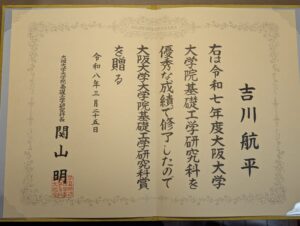 吉川航平
右は令和七年度大阪大学
大学院基礎工学研究科を
優秀な成績で修了したので
大阪大学大学院基礎工学研究科賞
を贈る
令和八年三月二十五日
大阪大学大学院基礎工学研究科長
関山明